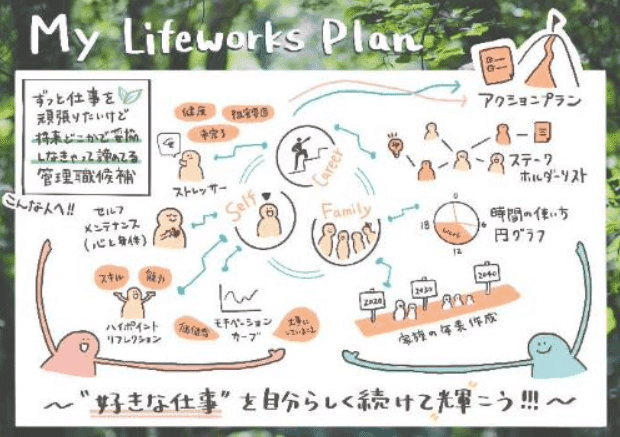 My Lifeworks Plan
ずっと仕事を
頑張りたいけど
将来どこかで妥協
しなきゃって諦めてる
管理職候補
こんな人へ!!
アクションプラン
健康
阻害要因
未完了
ストレッサー
Career
Self
Family
ステーク
ホルダーリスト
セルフ
メンテナンス
(心と身体)
0
6
12
18
Work
時間の使い方
円グラフ
スキル
能力
ハイポイント
リフレクション
価値観
モチベーション
カーブ
大事に
していること
2020
2030
2040
家族の年表作成
〜"好きな仕事"を自分らしく続けて輝こう!!!〜